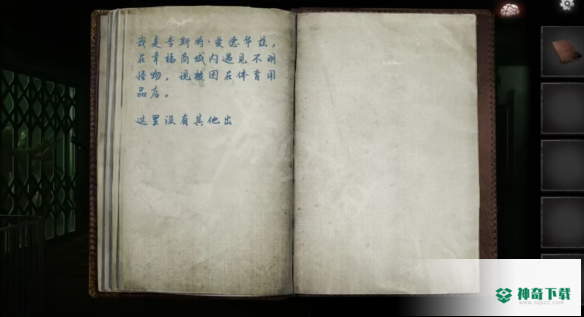 我是李斯特·爱德华兹,
在幸福商城内遇见不明
怪物。现被困在体育用
品店。
这里没有其他出
神奇下载